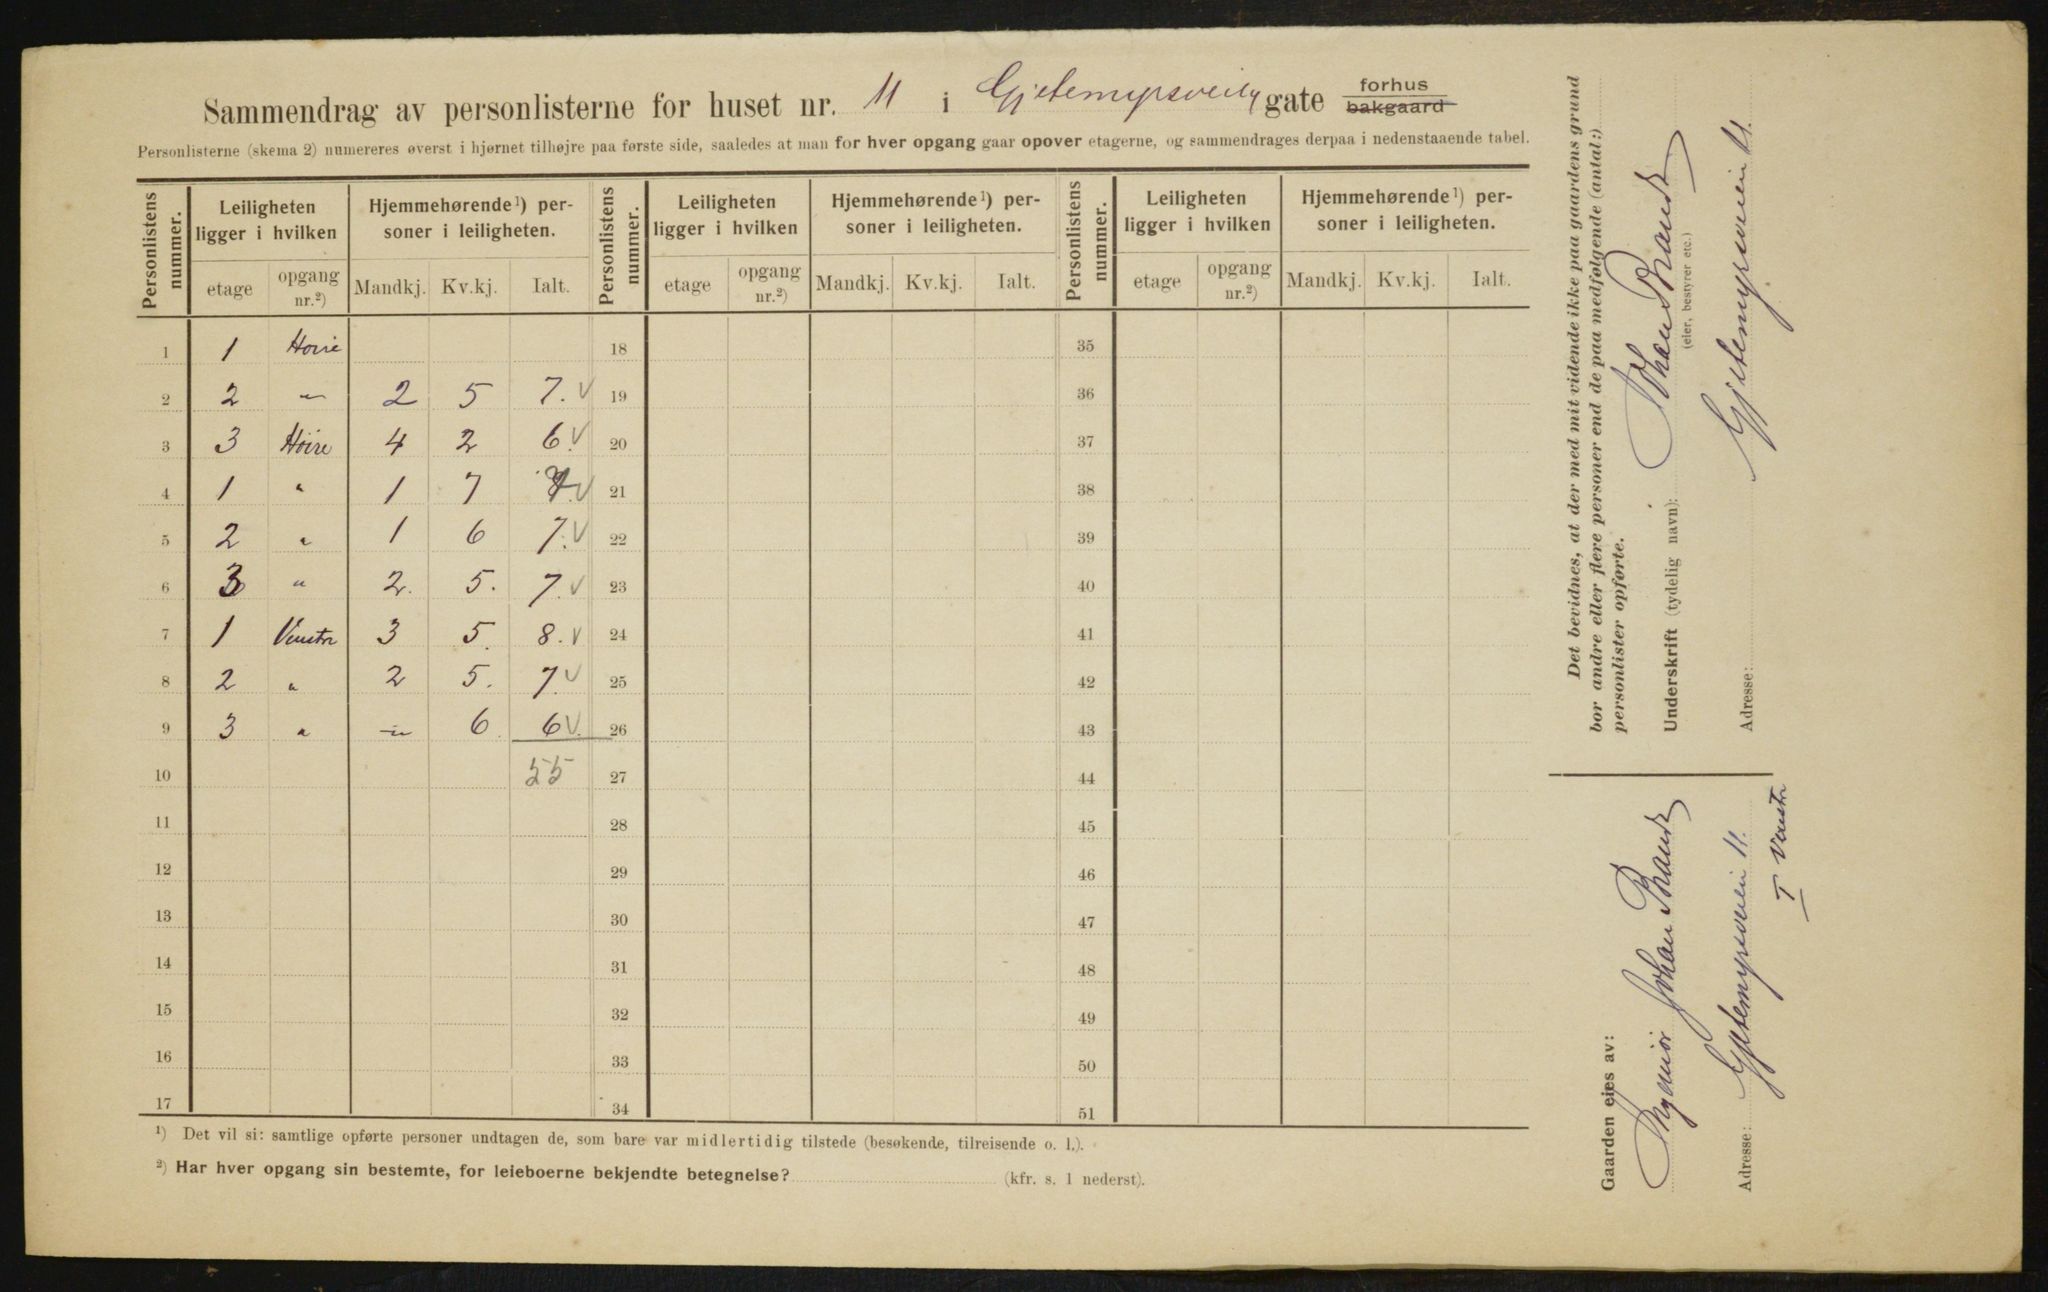 Sammendrag av personlisterne for huset nr. 11 i Gjetemyrsveien gate forhus bakgaard
Personlisterne (skema 2) numereres øverst i hjørnet tilhøjre paa første side, saaledes at man for hver opgang gaar opover etagerne, og sammendrages derpaa i nedenstaaende tabel.
Personlistens nummer. Leiligheten ligger i hvilken Hjemmehørende¹) personer i leiligheten. Personlistens nummer. Leiligheten ligger i hvilken Hjemmehørende¹) personer i leiligheten. Personlistens nummer. Leiligheten ligger i hvilken Hjemmehørende¹) personer i leiligheten.
etage opgang nr.²) Mandkj. Kv.kj. Ialt. etage opgang nr.²) Mandkj. Kv.kj. Ialt. etage opgang nr.²) Mandkj. Kv.kj. Ialt.
1 1 Høire 18 35
2 2 " 2 5 7. V 19 36
3 3 Høire 4 2 6. V 20 37
4 1 " 1 7 V 21 38
5 2 " 1 6 7. V 22 39
6 3 " 2. 5. 7. V 23 40
7 1 Venstre 3 5. 8. V 24 41
8 2 " 2 5. 7. V 25 42
9 3 " - 6 6 V. 26 43
10 55 27 44
11 28 45
12 29 46
13 30 47
14 31 48
15 32 49
16 33 50
17 34 51
¹) Det vil si: samtlige opførte personer undtagen de, som bare var midlertidig tilstede (besøkende, tilreisende o. l.).
²) Har hver opgang sin bestemte, for leieboerne bekjendte betegnelse? (kfr. s. 1 nederst).
Det bevidnes, at der med mit vidende ikke paa gaardens grund
bor andre eller flere personer end de paa medfølgende (antal:)
personlister opførte.
Underskrift (tydelig navn): Johan Brandt
(eier, bestyrer etc.)
Adresse: Gjetemyrsveien 11.
Gaarden eies av:
Johan Brandt
Adresse: Gjetemyrsveien 11.
I Venstre